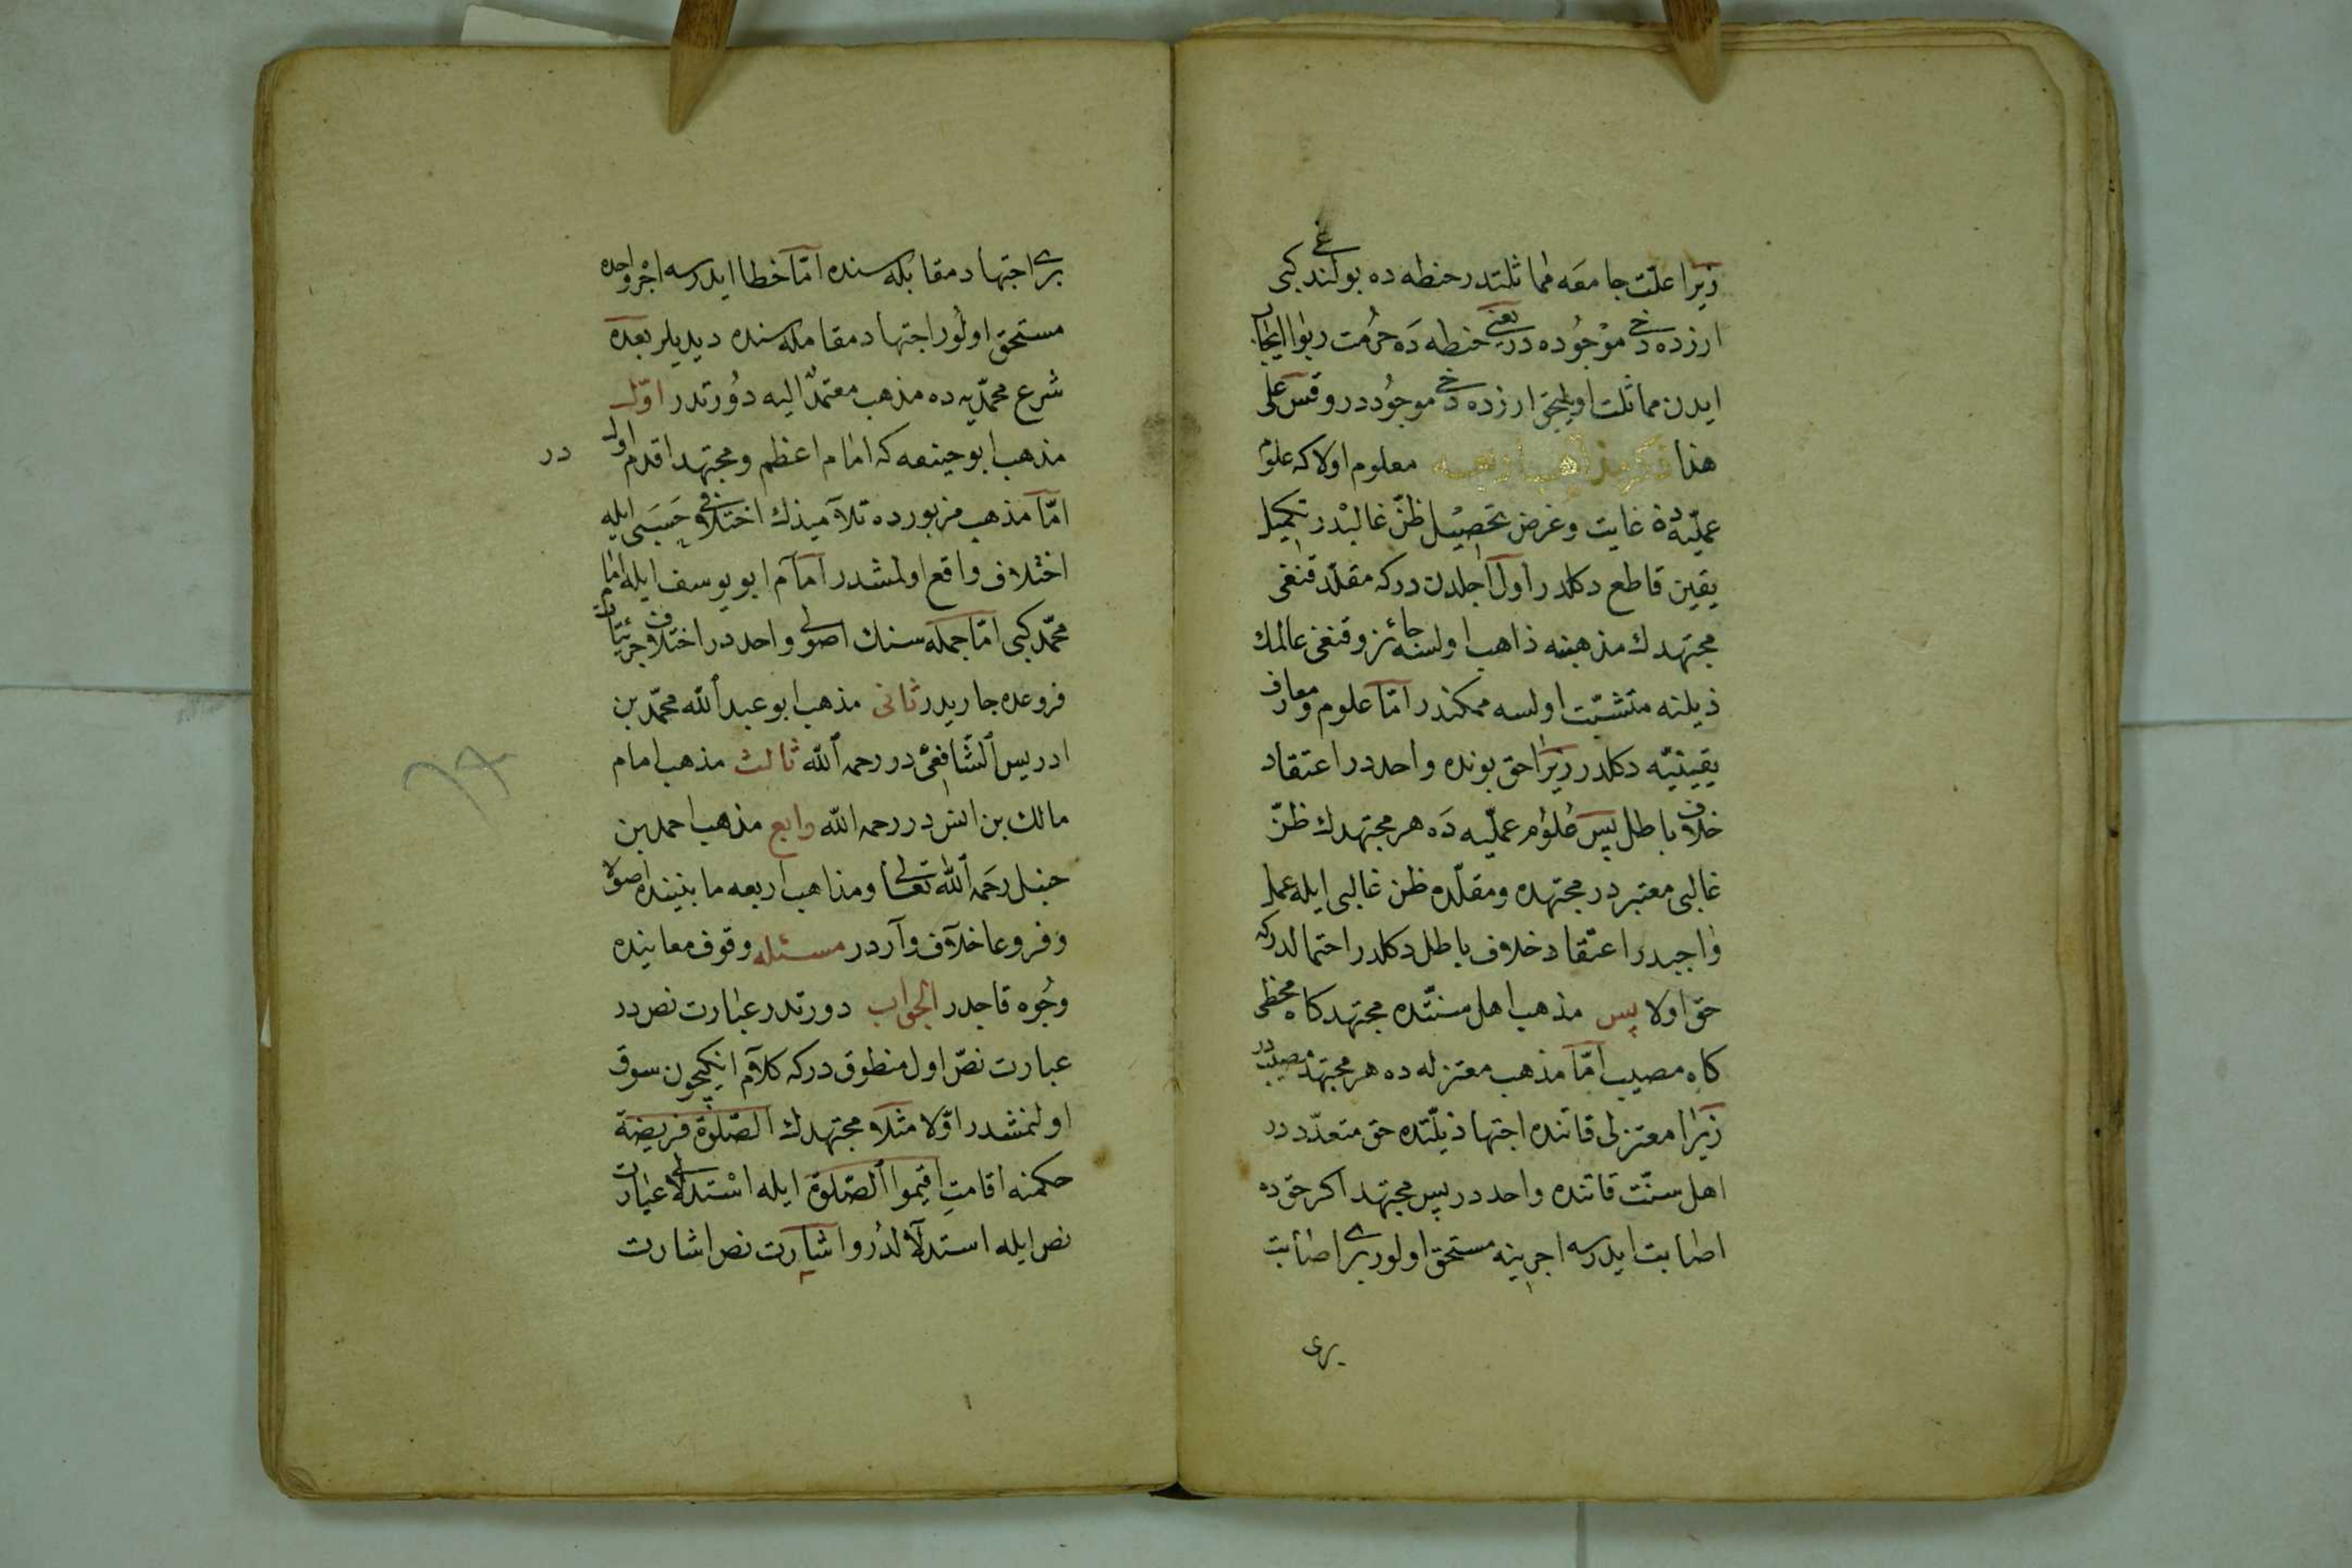 زيرا علّت جامعه مماثلتدر حنطه ده بولندغى كبى
ارزده دخى موجوده در يعنى حنطه ده حُرمت ربوا ايجاب
ايدن مماثلت اوليجق ارزده دخى موجُوددر و قس على
هذا ذكر مذاهب اربعه معلوم اولا كه علوم
عمليّه ده غايت وغرض تحصيل ظنّ غالبدر تكميل
يقين قاطع دكلدر اول اجلدن در كه مقلّد قنغى
مجتهدك مذهبنه ذاهب اولسه جائز و قنغى عالمك
ذيلنه متشبّث اولسه ممكندر امّا علوم ومعارف
يقينيّه دكلدر زيرا حق بونده واحددر اعتقاد
خلاف باطل پس علوم عمليّه ده هر مجتهدك ظنّ
غالبى معتبردر مجتهده ومقلّده ظن غالبى ايله عمل
واجبدر اعتقاد خلاف باطل دكلدر احتمالدر كه
حق اولا پس مذهب اهل سنّتده مجتهد كاه مخطى
كاه مصيب امّا مذهب معتزله ده هر مجتهد مصيبدر
زيرا معتزلى قاتنده اجتهاد ذيلتده حق متعدّددر
اهل سنّت قاتنده واحددر پس مجتهد اكر حقده
اصابت ايدرسه اجرينه مستحق اولور برى اصابت
برى
برى اجتهاد مقابله سنده امّا خطا ايدرسه اجر واحده
مستحق اولور اجتهاد مقابله سنده ديديلر بعده
شرع محمّديه ده مذهب معتمدٌ اليه دُورتدر اوّل
مذهب ابو حنيفه كه امام اعظم ومجتهد اقدم اولدر
امّا مذهب مزبورده تلاميذك اختلافى حسبى ايله
اختلاف واقع اولمشدر امام ابو يوسف ايله امام
محمّد كبى امّا جمله سنك اصولى واحددر اختلاف جزئيّات
فروعده جاريدر ثانى مذهب ابو عبد الله محمّد بن
ادريس الشّافعى در رحمه الله ثالث مذهب امام
مالك بن انس در رحمه الله رابع مذهب احمد بن
حنبل رحمه الله تعالى ومذاهب اربعه مابيننده اصولا
وفروعا خلاف واردر مسئله وقوف معانيده
وجُوه قاجدر الجواب دورتدر عبارت نص در
عبارت نصّ اول منطوق در كه كلام انكيچون سوق
اولنمشدر اوّلا مثلا مجتهدك الصّلوة فريضة
حكمنه اقامتِ اقيموا الصّلوة ايله استدلالى عبارت
نص ايله استدلالدُر و اشارت نص اشارت